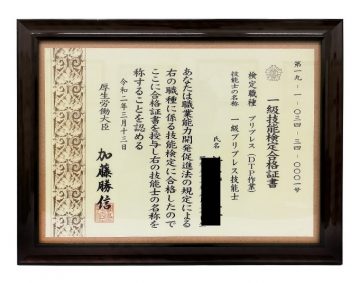 第一九-1-〇三四-三四-〇〇〇一号
一級技能検定合格証書
検定職種 プリプレス(DTP作業)
技能士の名称 一級プリプレス技能士
氏名
あなたは職業能力開発促進法の規定による
右の職種に係る技能検定に合格したので
ここに合格証書を授与し右の技能士の名称を
称することを認める
令和二年三月十三日
厚生労働大臣
加藤勝信